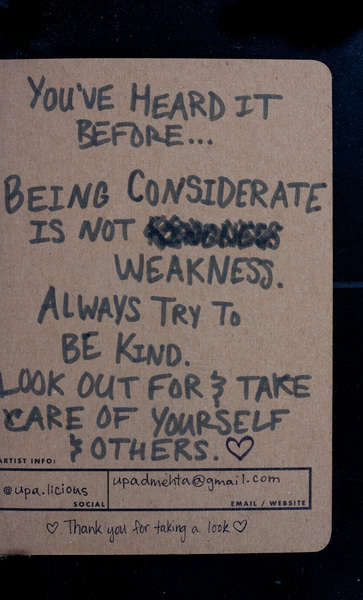 YOU'VE HEARD IT
BEFORE...
BEING CONSIDERATE
IS NOT
WEAKNESS.
ALWAYS TRY TO
BE KIND.
LOOK OUT FOR & TAKE
CARE OF YOURSELF
& OTHERS. ♡
ARTIST INFO:
@upa.licious
upadmehta@gmail.com
SOCIAL
EMAIL / WEBSITE
♡ Thank you for taking a look ♡